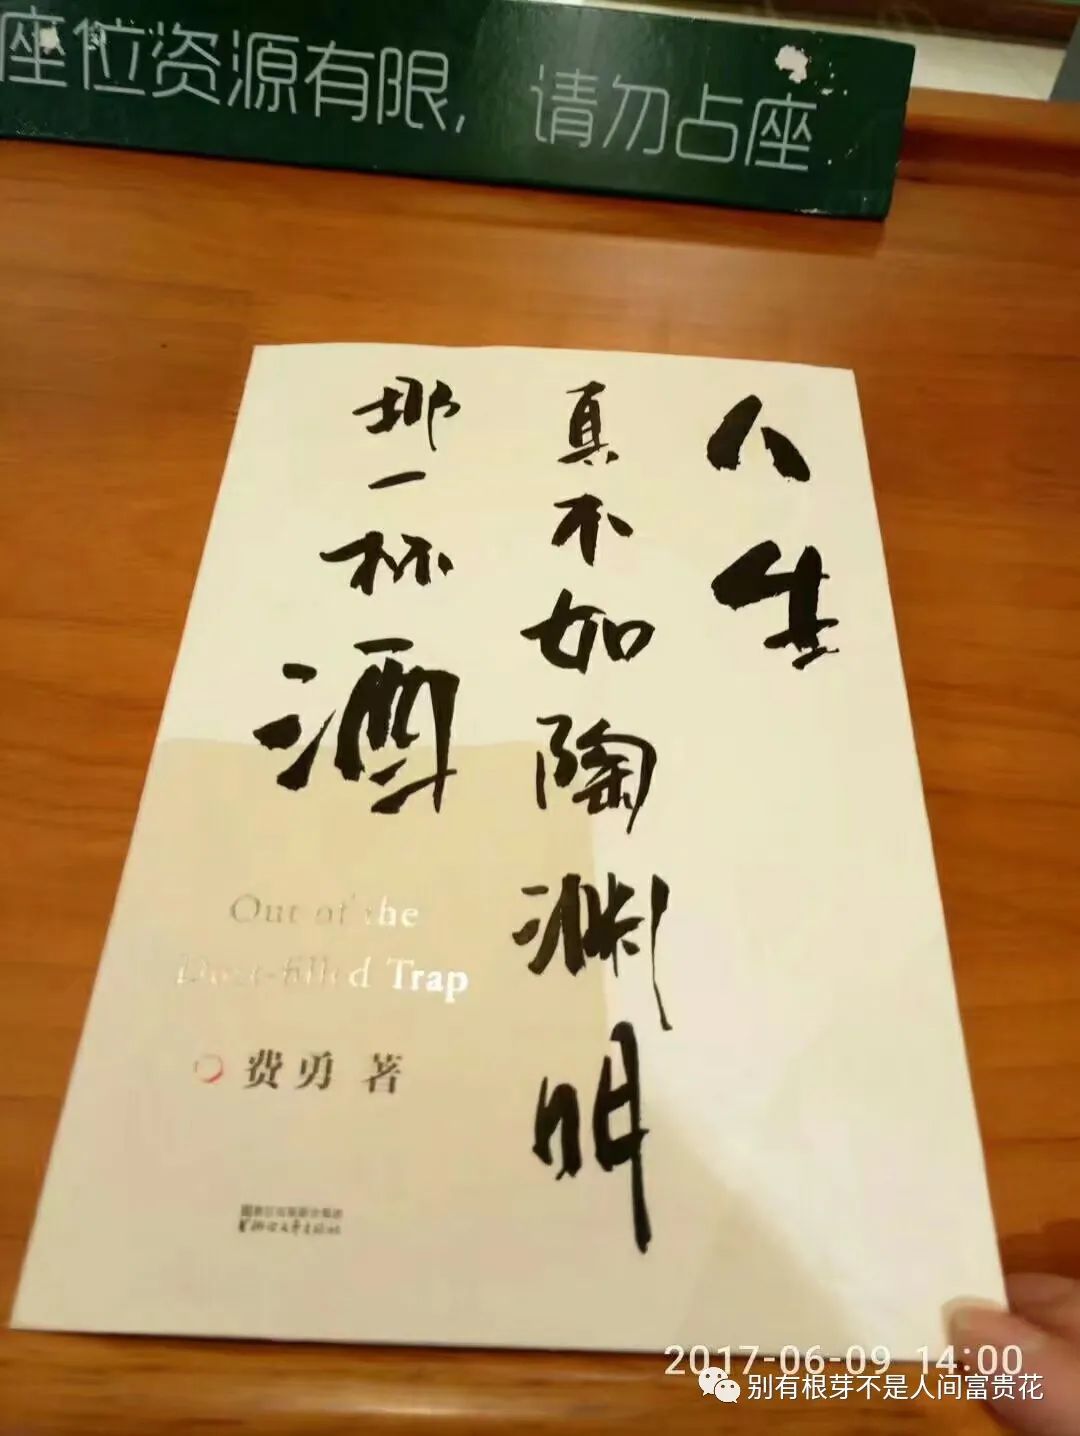 座位资源有限，请勿占座
人生
真不如陶渊明
那一杯酒
Out of the
Dust-filled Trap
费勇 著
2017-06-09 14:00
别有根芽不是人间富贵花